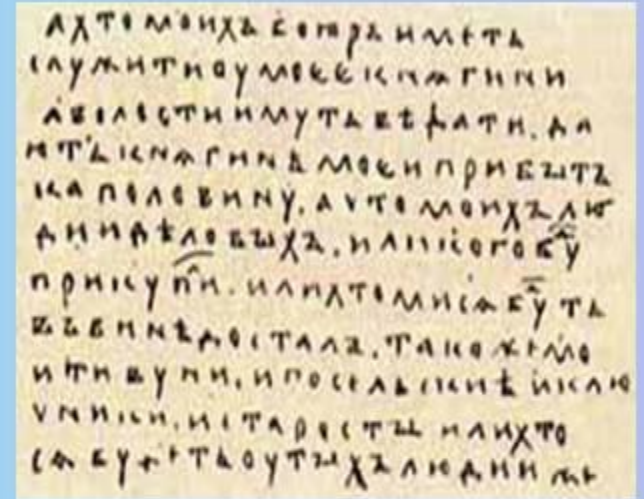 А ХТО МОИХЪ БОꙖРЪ ИМѢТЬ
СЛУЖИТИ ОУ МОЕЕ КНѦГИНИ
А ВОЛОСТИ ИМУТЬ ВѢДАТИ, ДА
ЮТЬ КНѦГИНѢ МОЕИ ПРИБЫТ
КА ПОЛОВИНУ. А ХТО МОИХЪ ЛЮ
ДИИ ДѢЛОВЫХЪ, ИЛИ КОГО БУ
ПРИКУПИ. ИЛИ ХТО МИ СѦ БУТЬ
ВЪ ВИНѢ ДОСТАЛЪ, ТАКОЖЕ МО
И ТИВУНИ, И ПОСЕЛЬСКИѢ И КЛЮ
ЧНИКИ, И СТАРОСТЫ ИЛИ ХТО
СѦ БУДѢТЬ ОУ ТЫХЪ ЛЮДИИ